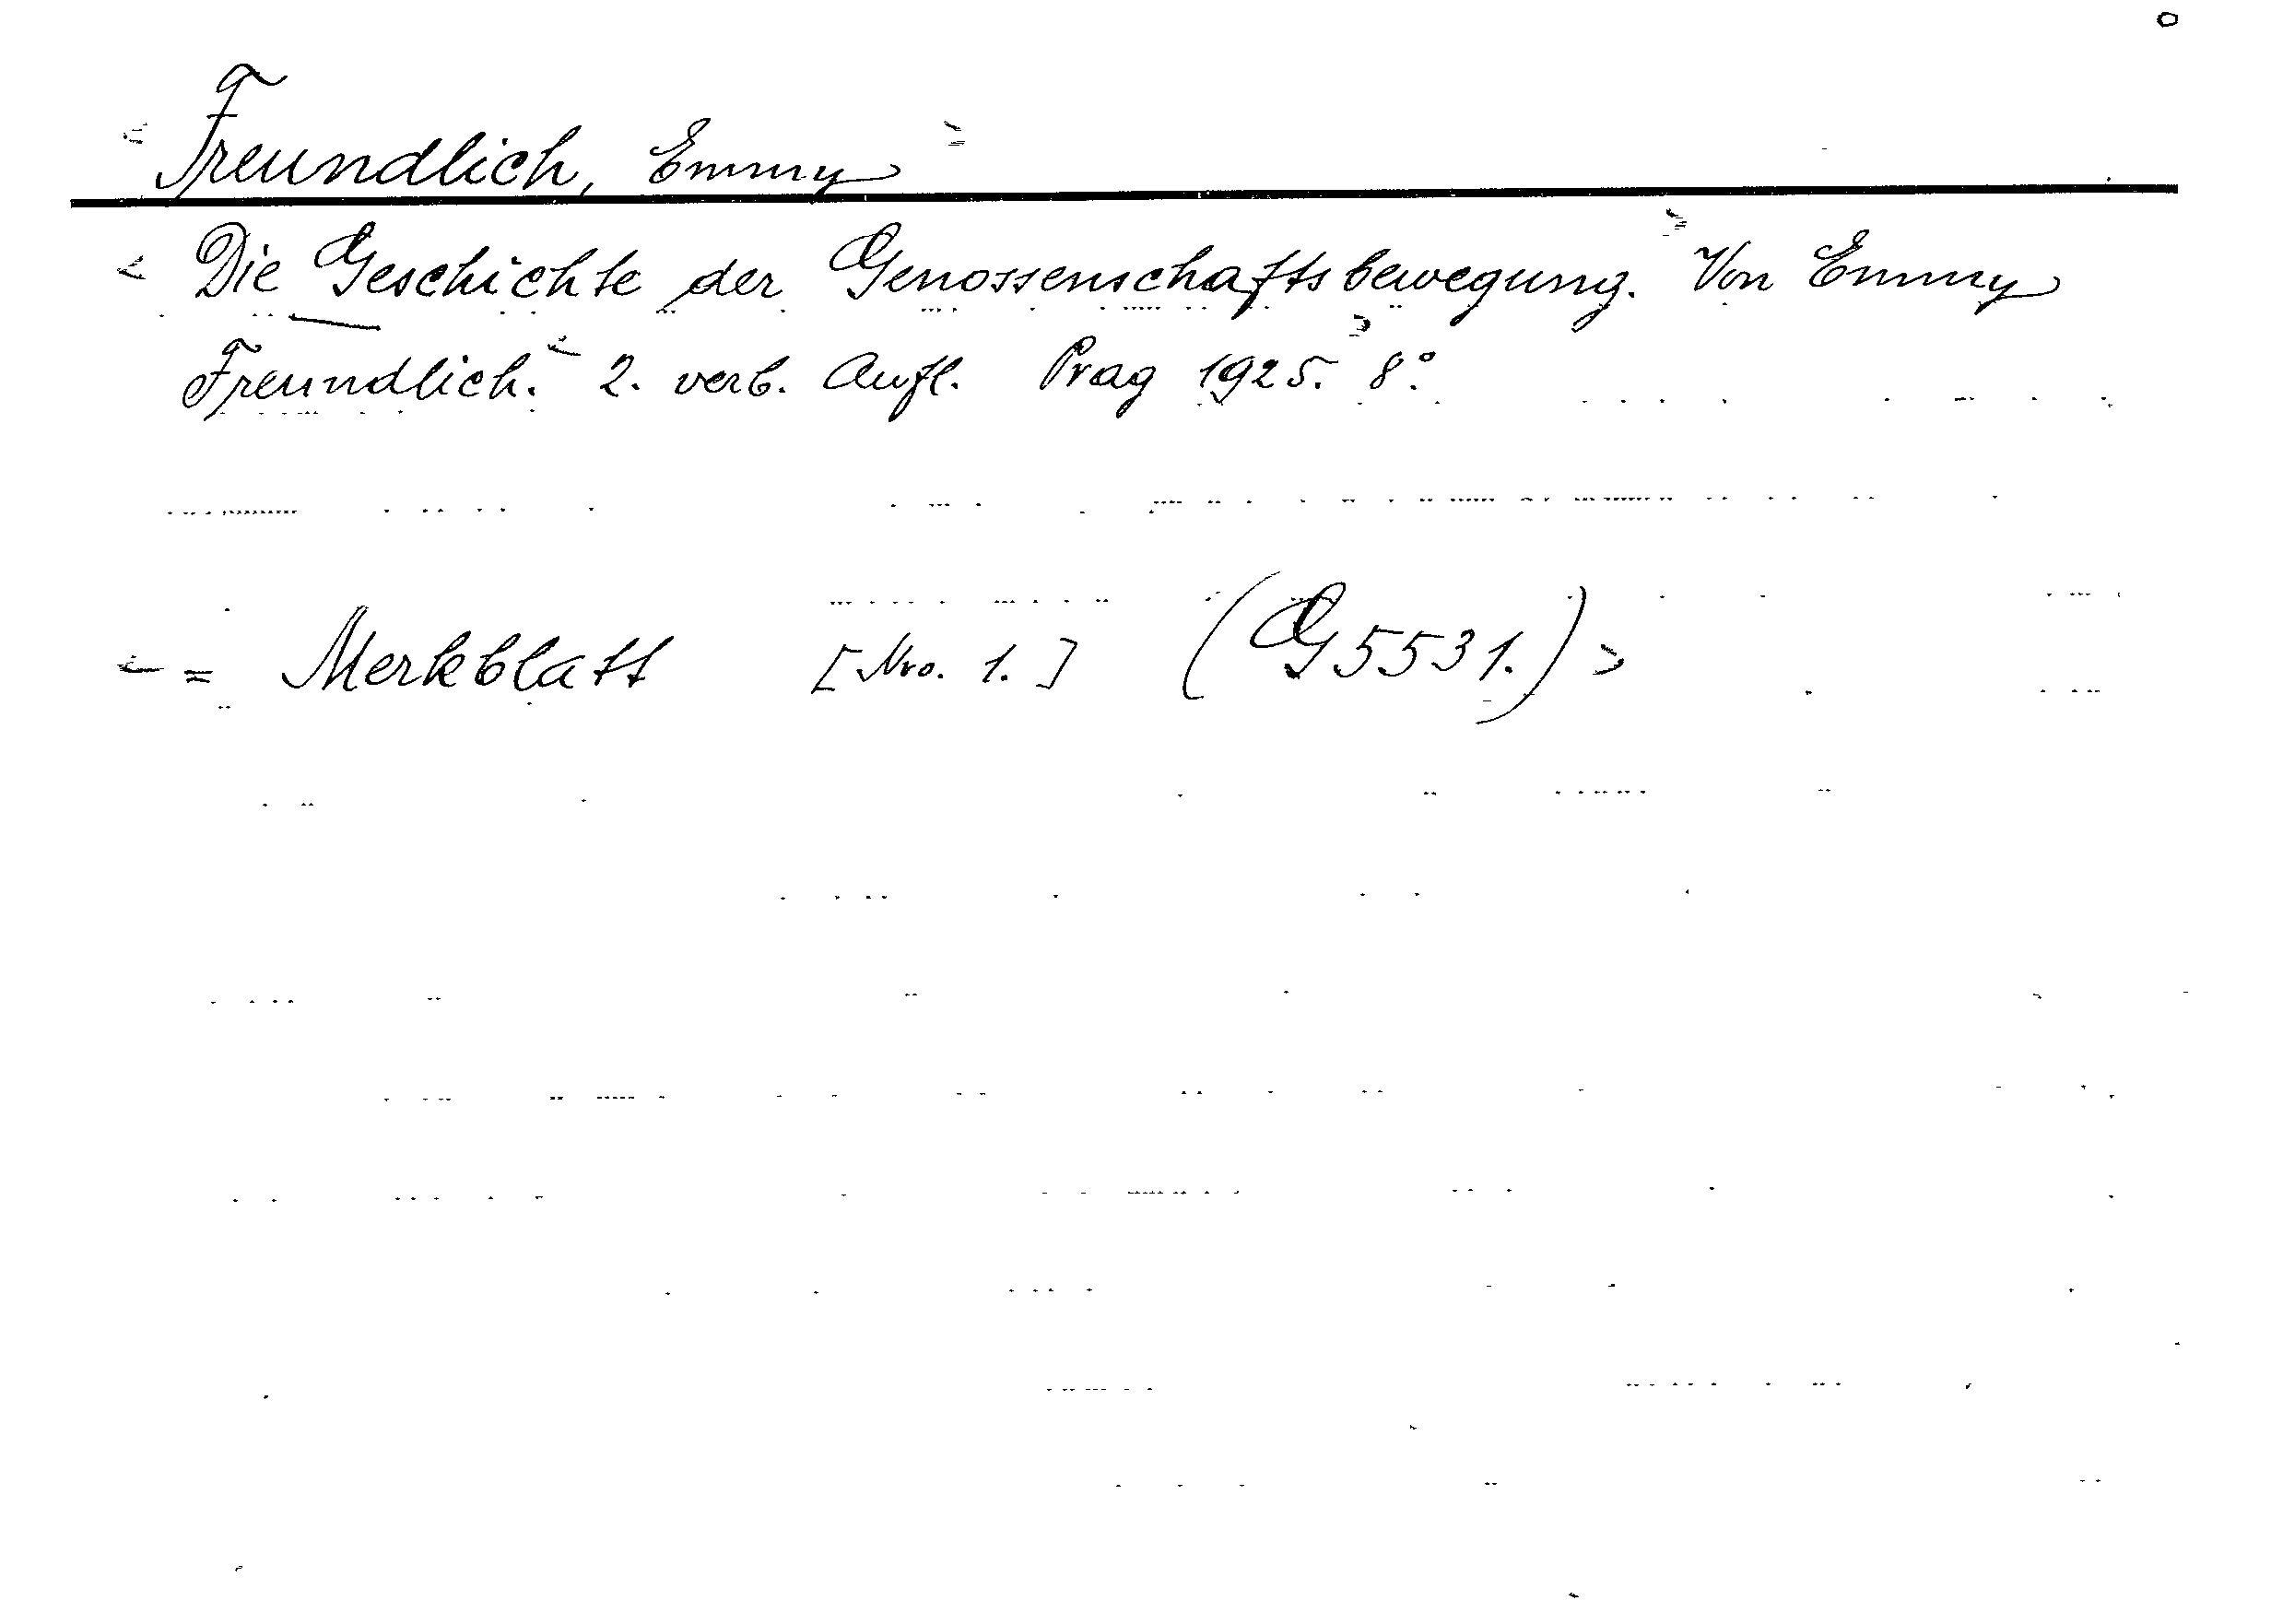 < Freundlich, Emmy >
< Die Geschichte der Genossenschaftsbewegung. > Von Emmy
Freundlich. < 2. verb. Aufl. Prag 1925. > 8°.
< = Merkblatt [Nro. 1.] (G 5531.) >